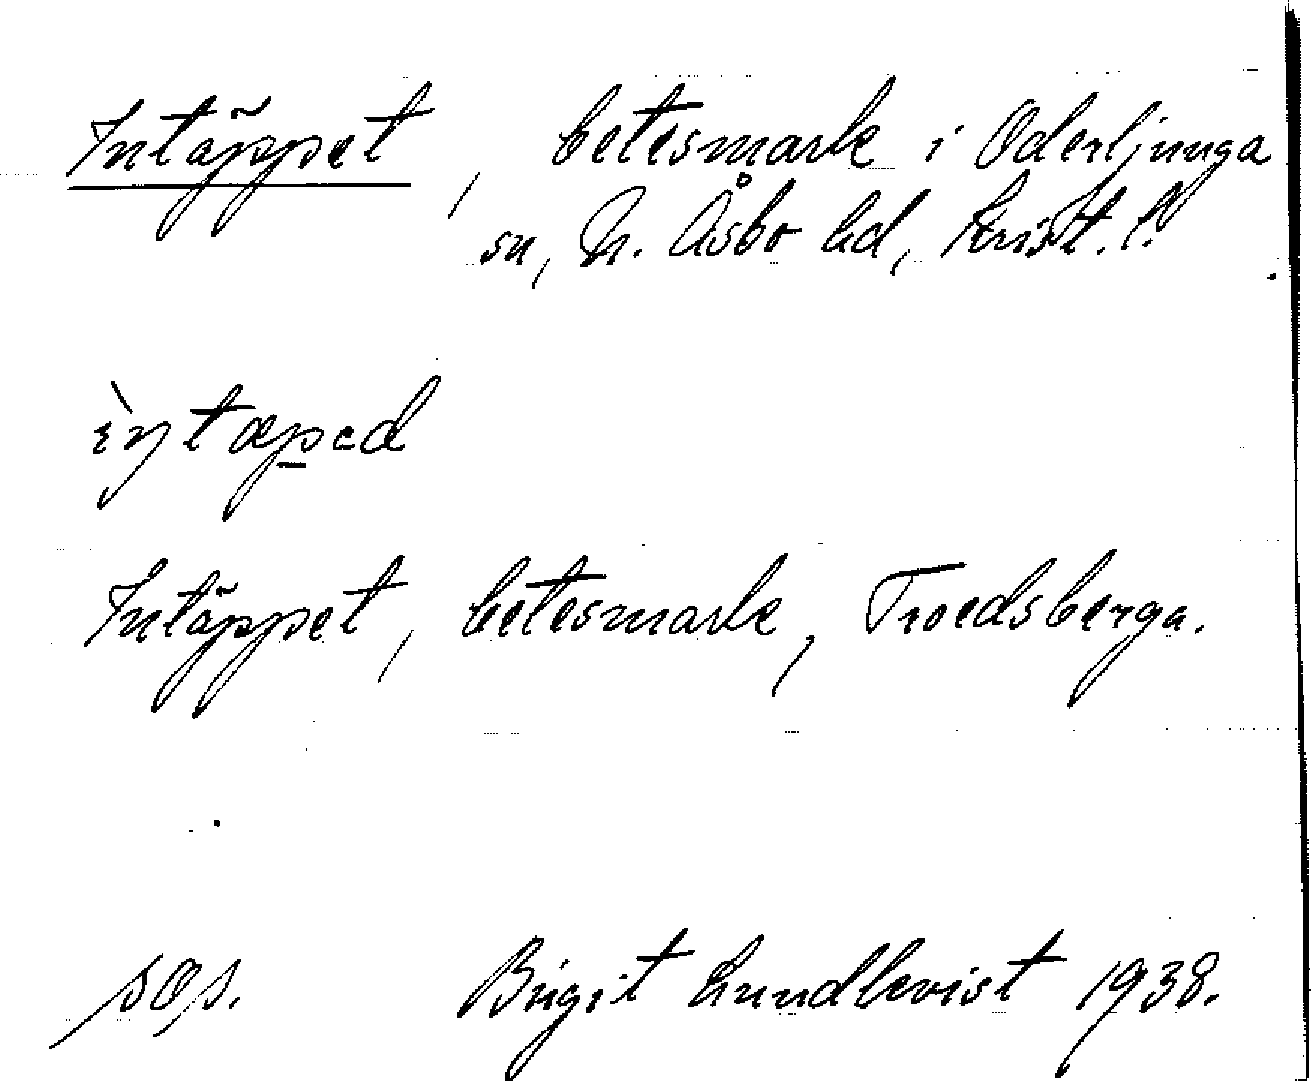 Intäppet, betesmark i Oderljunga
sn, N. Åsbo hd, Krist. l.
Intäppet, betesmark, Troedsberga.
Birgit Lundkvist 1938.